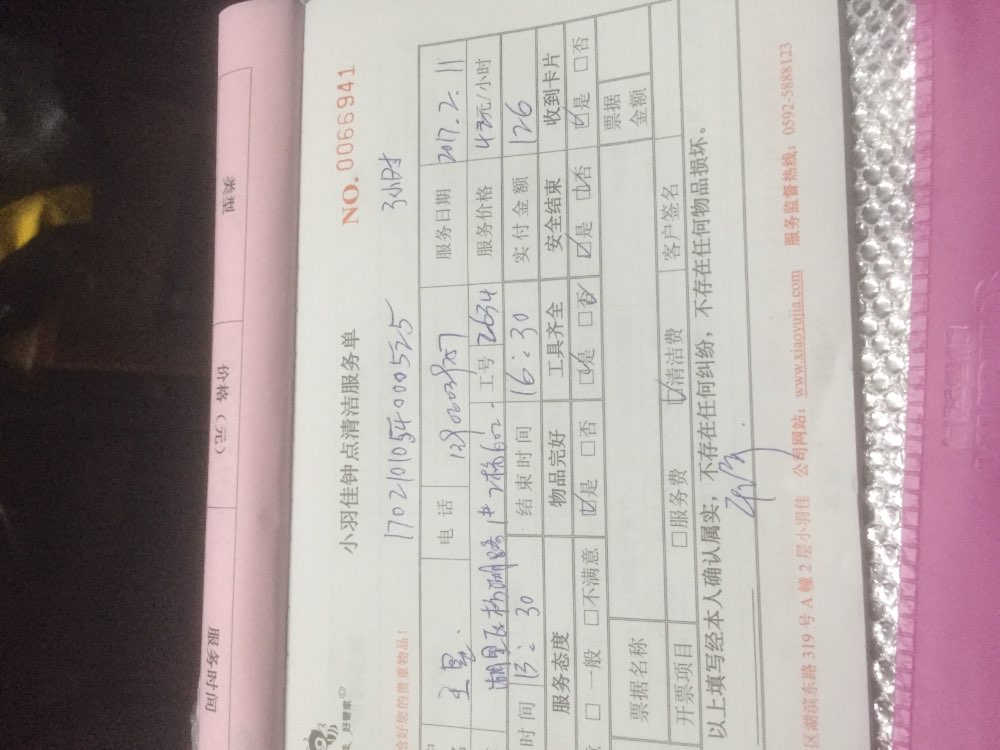 类型
价格（元）
服务时间
小羽佳钟点清洁服务单
NO. 0066941
好管家
17021010540000525 3小时
恰好您的贵重物品！
王星 电话 服务日期 2017.2.11
工号 2634 服务价格 42元/小时
时间 13:30 结束时间 16:30 实付金额 126
服务态度 物品完好 工具齐全 安全结束 收到卡片
□ 一般 □不满意 ☑是 □否 ☑是 □否 ☑是 □否 ☑是 □否
票据名称 票据金额
开票项目 □服务费 ☑清洁费 客户签名
以上填写经本人确认属实，不存在任何纠纷，不存在任何物品损坏。
区湖滨东路 319 号 A 幢 2 层小羽佳 公司网站：www.xiaoyujia.com 服务监督热线：0592-5888123